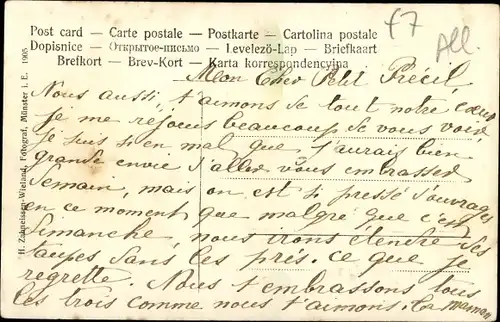 Post card — Carte postale — Postkarte — Cartolina postale
Dopisnice — Открытое-письмо — Levelező-Lap — Briefkaart
Brefkort — Brev-Kort — Karta korrespondencyjna
F7
All.
H. Zahneissen-Wieland, Fotograf, Münster i. E. 1905
Mon Cher Petit Précil
Nous aussi, t'aimons de tout notre cœur
je me réjouis beaucoup de vous voir
je suis si en mal que j'aurais bien
grande envie d'aller vous embrasser
demain, mais on est si pressé d'ouvrages
en ce moment que malgré que c'est
Dimanche, nous irons étendre des
taupes dans les prés. ce que je
regrette. Nous t'embrassons tous
les trois comme nous t'aimons. Ta maman